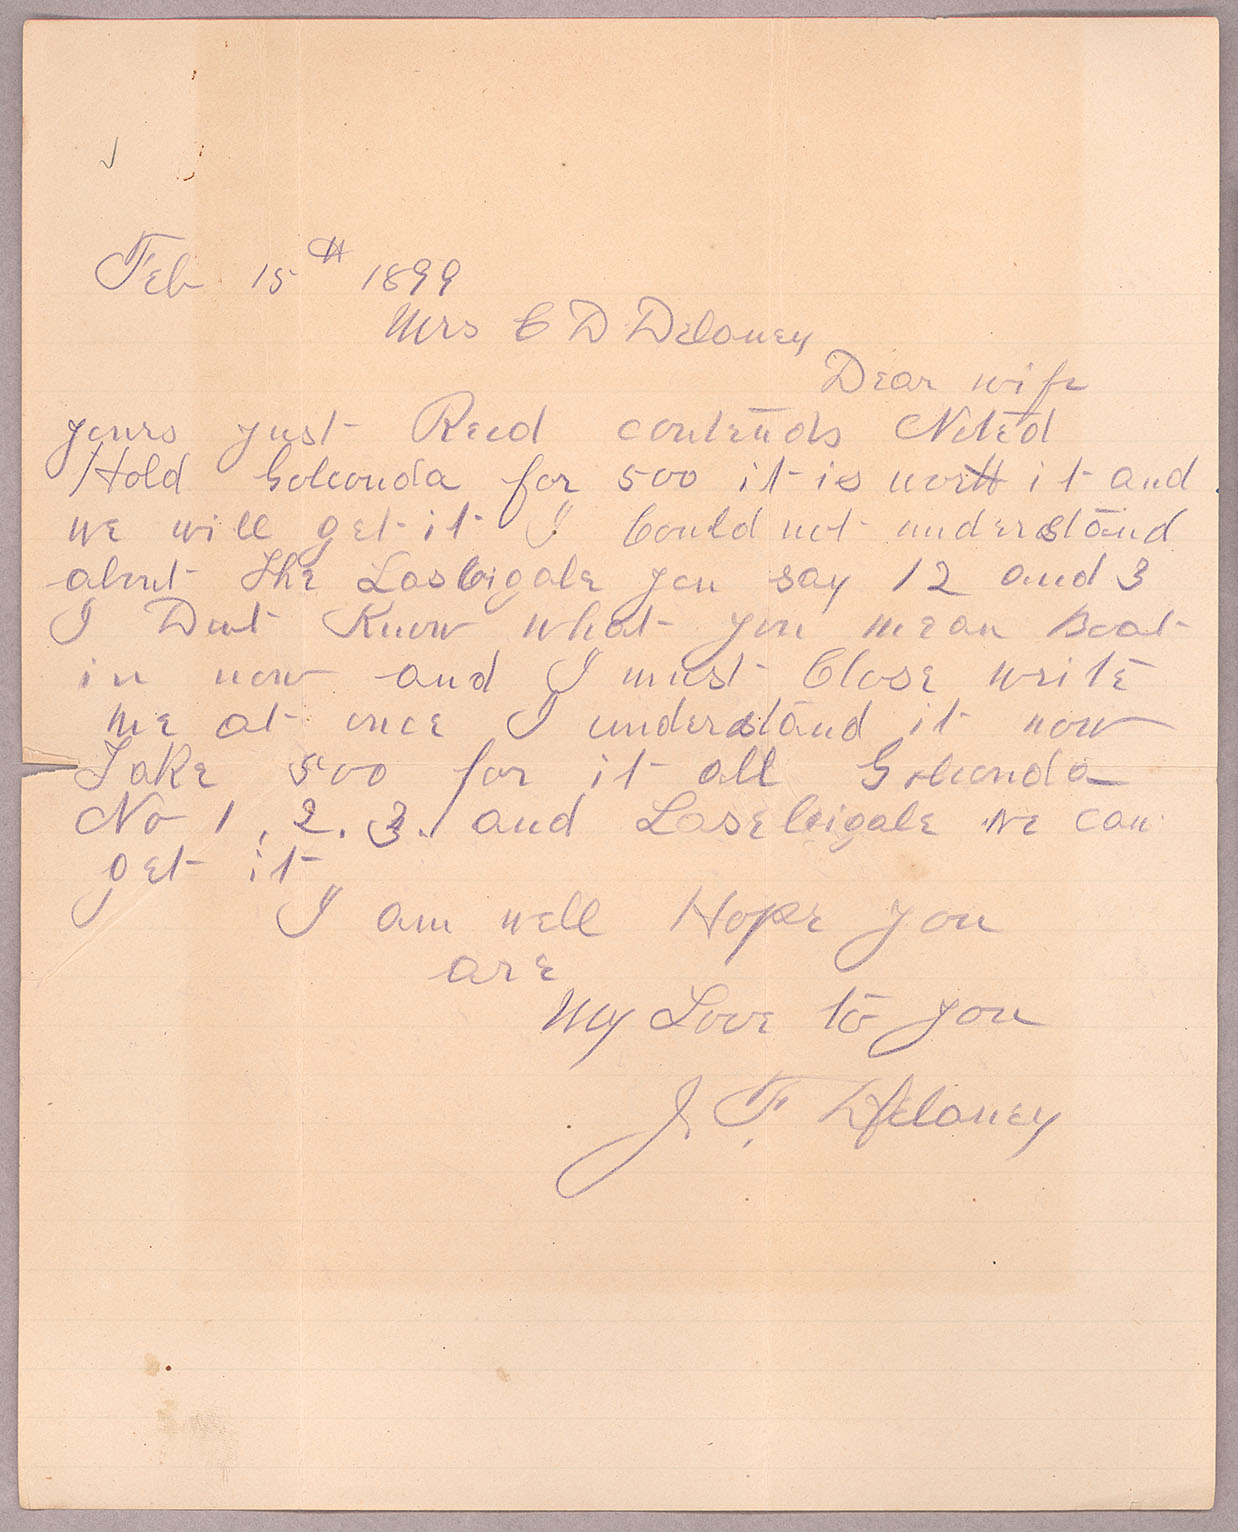 Feb 15th 1899
Mrs C D Delaney
Dear wife
yours just Recd contents Noted
Hold Golconda for 500 it is worth it and
we will get it I Could not understand
about the Lascigale you say 12 and 3
I Dont Know what you mean Boat
in now and I must Close write
me at once I understand it now
Take 500 for it all Golconda
No 1, 2. 3. and Lasecigale we can
get it
I am well Hope you
are
My Love to you
J. F. Delaney